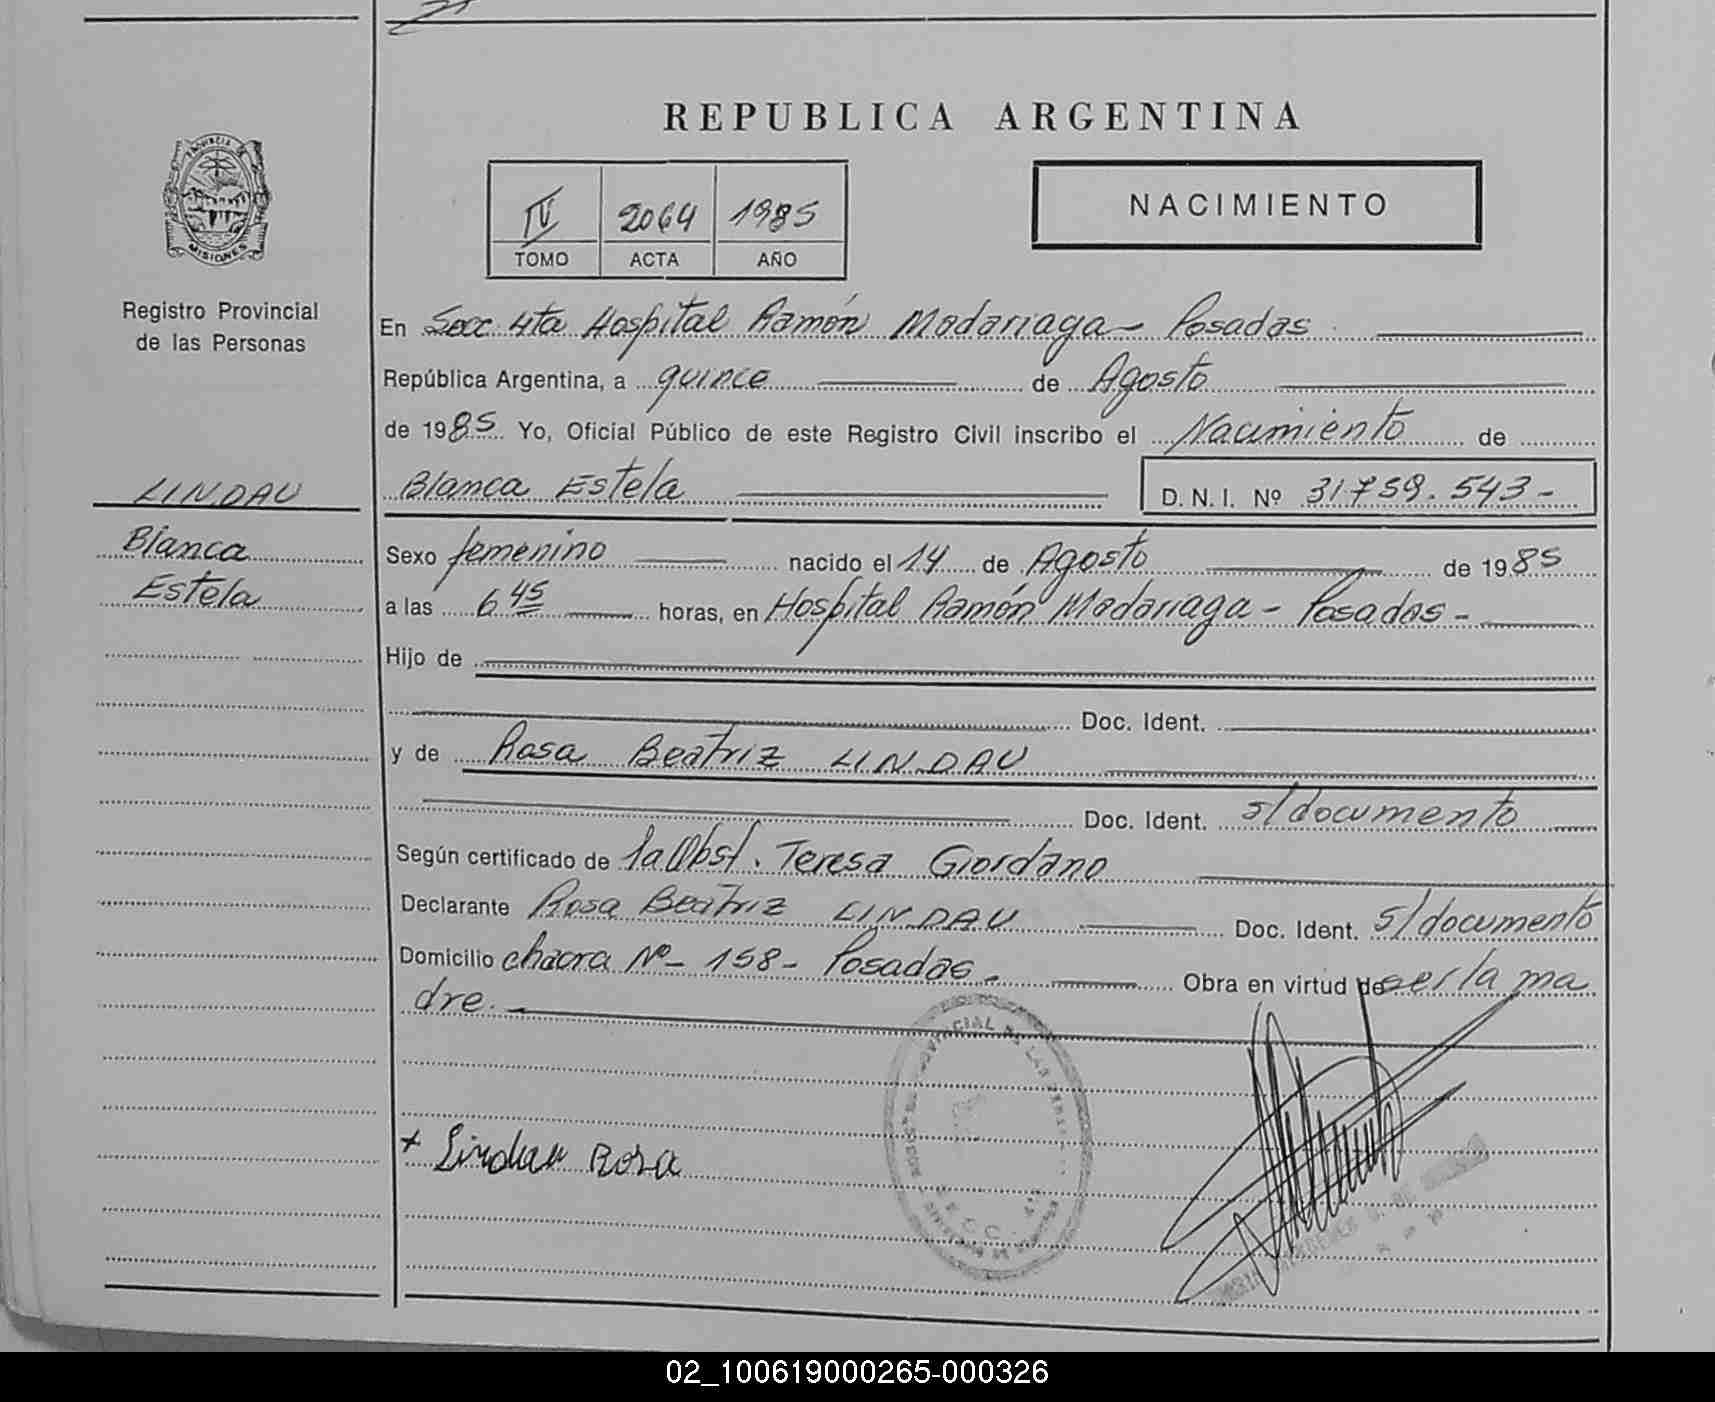 REPUBLICA ARGENTINA
PROVINCIA DE
MISIONES
IV 2064 1985
TOMO ACTA AÑO
NACIMIENTO
Registro Provincial
de las Personas
En Secc. 4ta Hospital Ramón Madariaga - Posadas
República Argentina, a quince de Agosto
de 1985 Yo, Oficial Público de este Registro Civil inscribo el Nacimiento de
LINDAU
Blanca Estela D. N. I. Nº 31.759.543-
Blanca
Estela
Sexo femenino nacido el 14 de Agosto de 1985
a las 6 45 horas, en Hospital Ramón Madariaga - Posadas -
Hijo de
Doc. Ident.
y de Rosa Beatriz LINDAU
Doc. Ident. s/documento
Según certificado de la Obst. Teresa Giordano
Declarante Rosa Beatriz LINDAU Doc. Ident. s/documento
Domicilio chacra Nº - 158 - Posadas. Obra en virtud de ser la ma
dre.
+ Lindau Rosa
SECC. 4ta
02_100619000265-000326